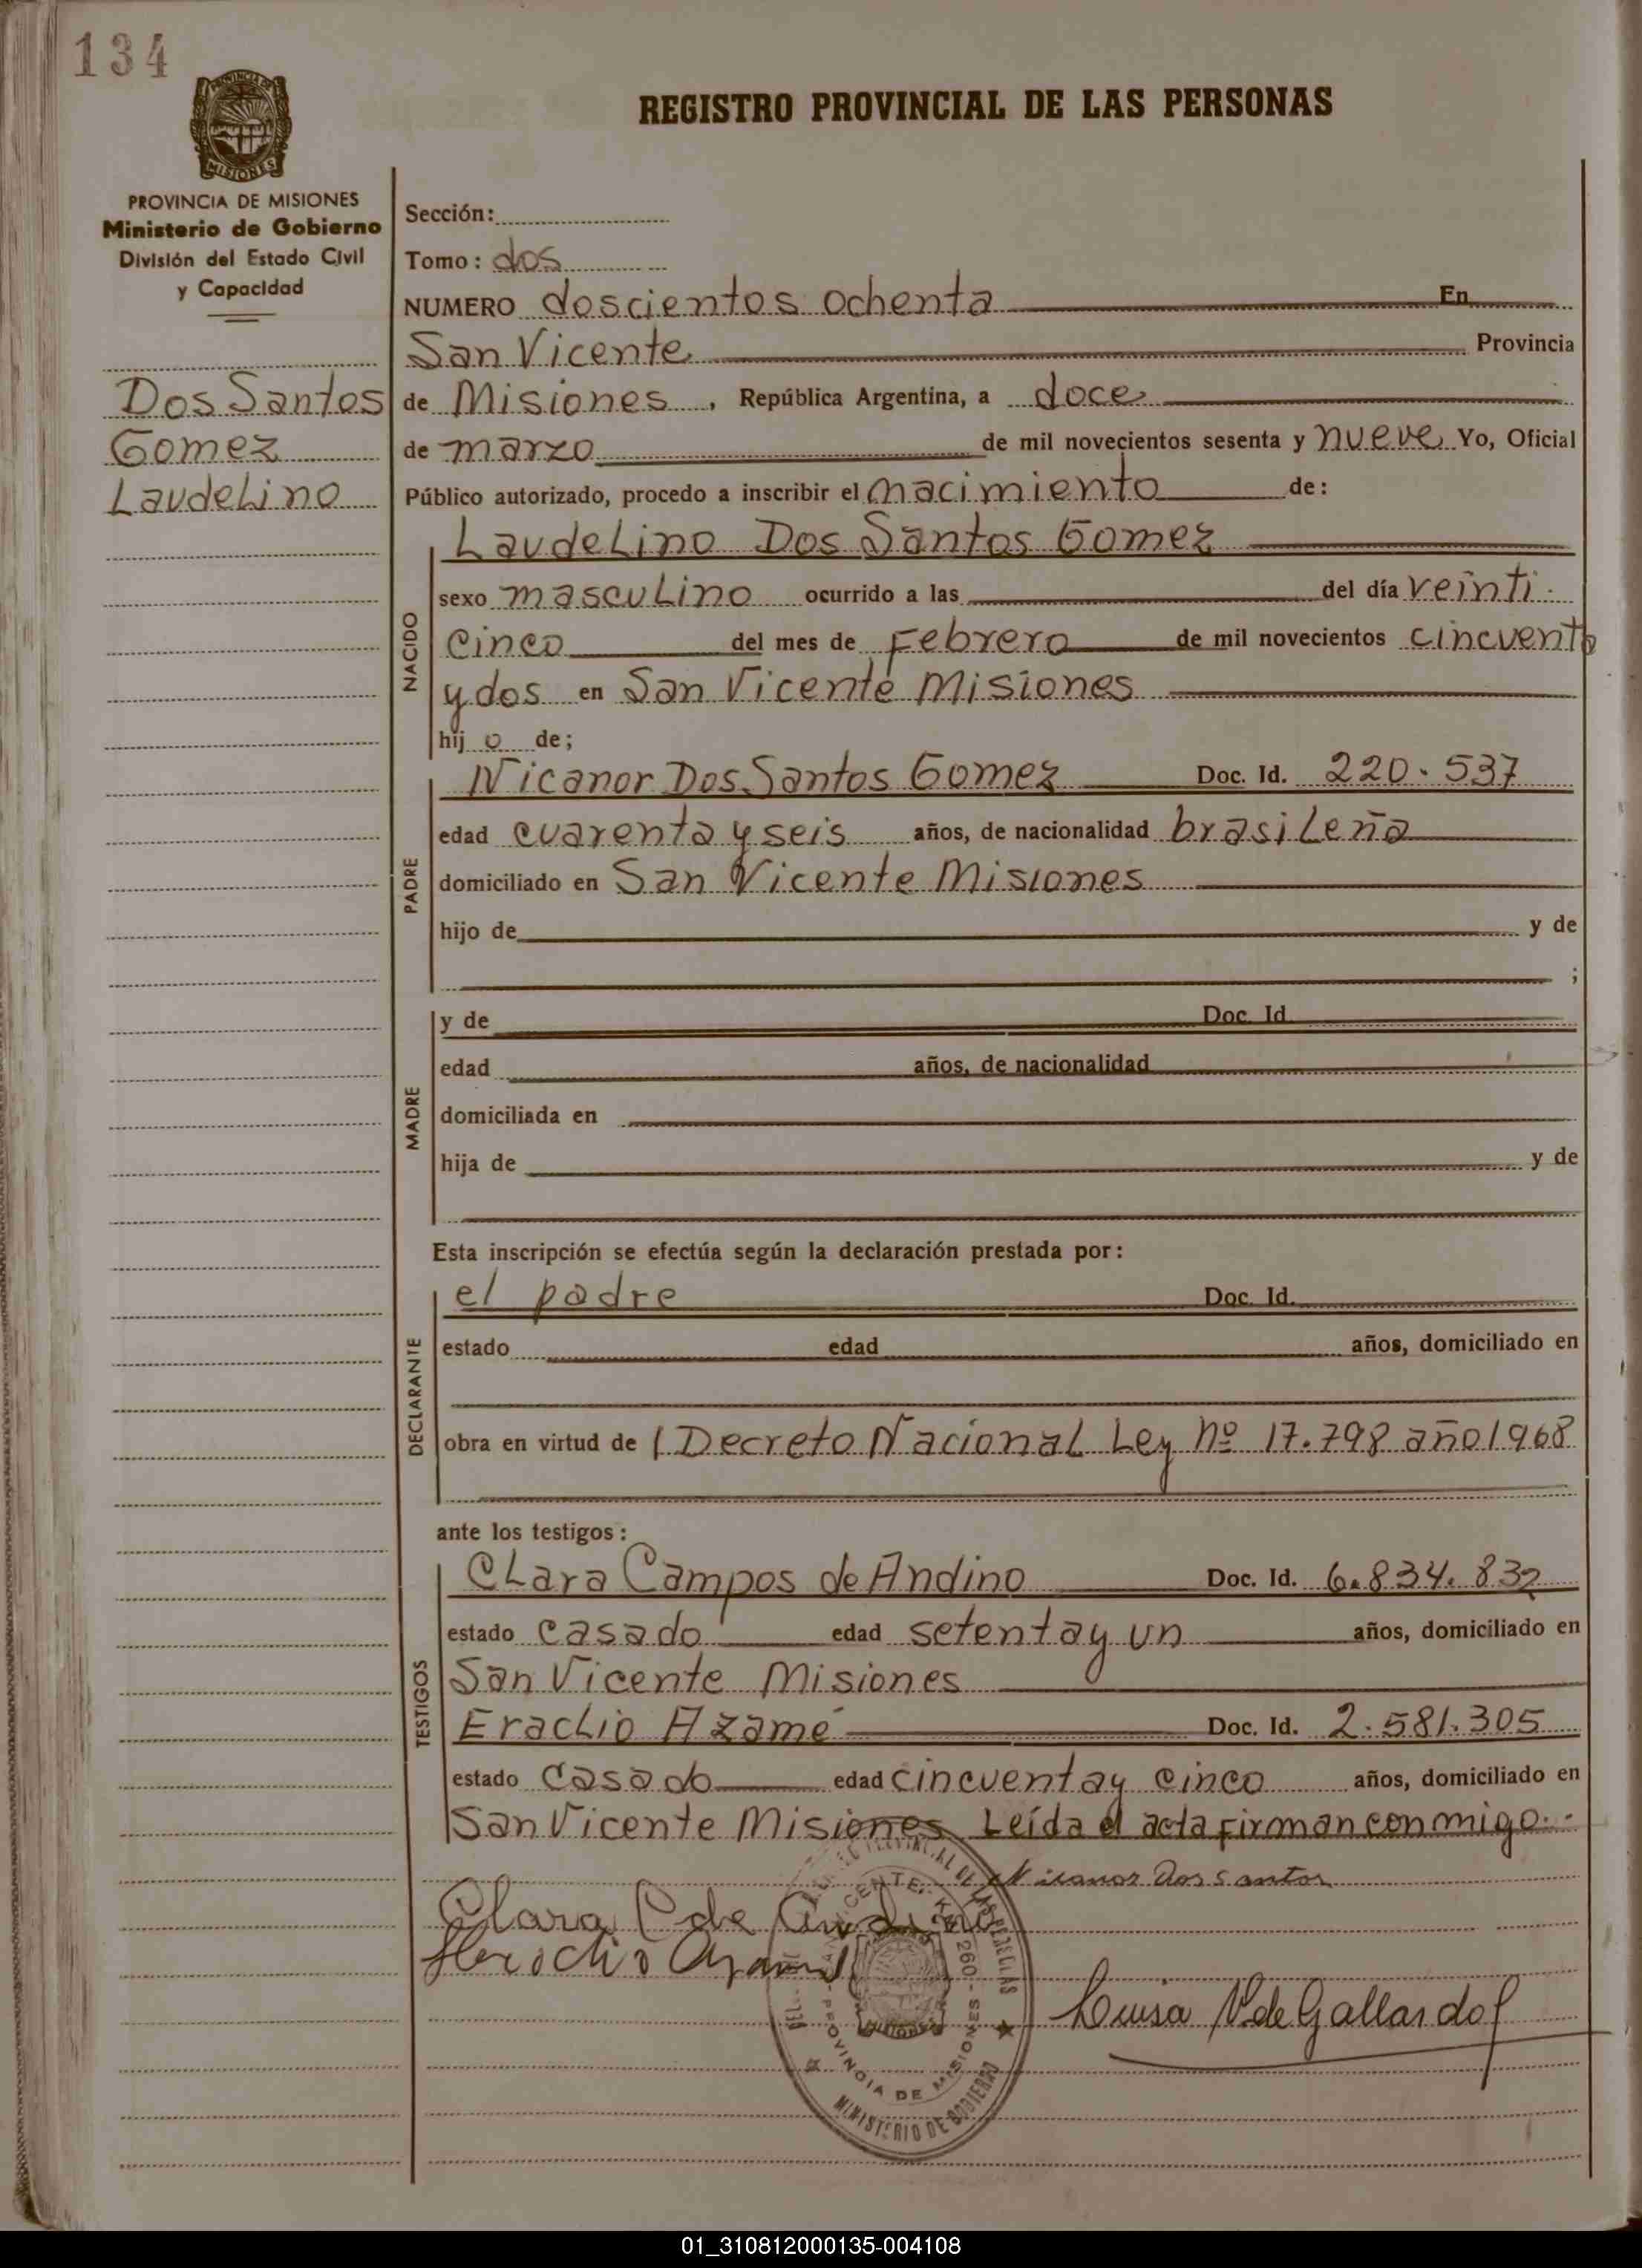 134
PROVINCIA DE MISIONES
MISIONES
REGISTRO PROVINCIAL DE LAS PERSONAS
PROVINCIA DE MISIONES
Ministerio de Gobierno
División del Estado Civil
y Capacidad
Dos Santos
Gomez
Laudelino
Sección:
Tomo: dos
NUMERO doscientos ochenta En
San Vicente Provincia
de Misiones, República Argentina, a doce
de marzo de mil novecientos sesenta y nueve Yo, Oficial
Público autorizado, procedo a inscribir el nacimiento de:
NACIDO
Laudelino Dos Santos Gomez
sexo masculino ocurrido a las del día veinti
cinco del mes de Febrero de mil novecientos cincuenta
y dos en San Vicente Misiones
hijo de;
PADRE
Nicanor Dos Santos Gomez Doc. Id. 220.537
edad cuarenta y seis años, de nacionalidad brasileña
domiciliado en San Vicente Misiones
hijo de y de
;
MADRE
y de Doc. Id.
edad años, de nacionalidad
domiciliada en
hija de y de
Esta inscripción se efectúa según la declaración prestada por:
DECLARANTE
el padre Doc. Id.
estado edad años, domiciliado en
obra en virtud de l Decreto Nacional Ley Nº 17.798 año 1968
ante los testigos:
TESTIGOS
Clara Campos de Andino Doc. Id. 6.834.832
estado casado edad setenta y un años, domiciliado en
San Vicente Misiones
Eraclio Azamé Doc. Id. 2.581.305
estado casado edad cincuenta y cinco años, domiciliado en
San Vicente Misiones Leída el acta firman conmigo.
Nicanor Dos Santos
Clara C de Andino
Luisa V. de Gallardo
PROVINCIA DE MISIONES
MINISTERIO DE GOBIERNO
01_310812000135-004108